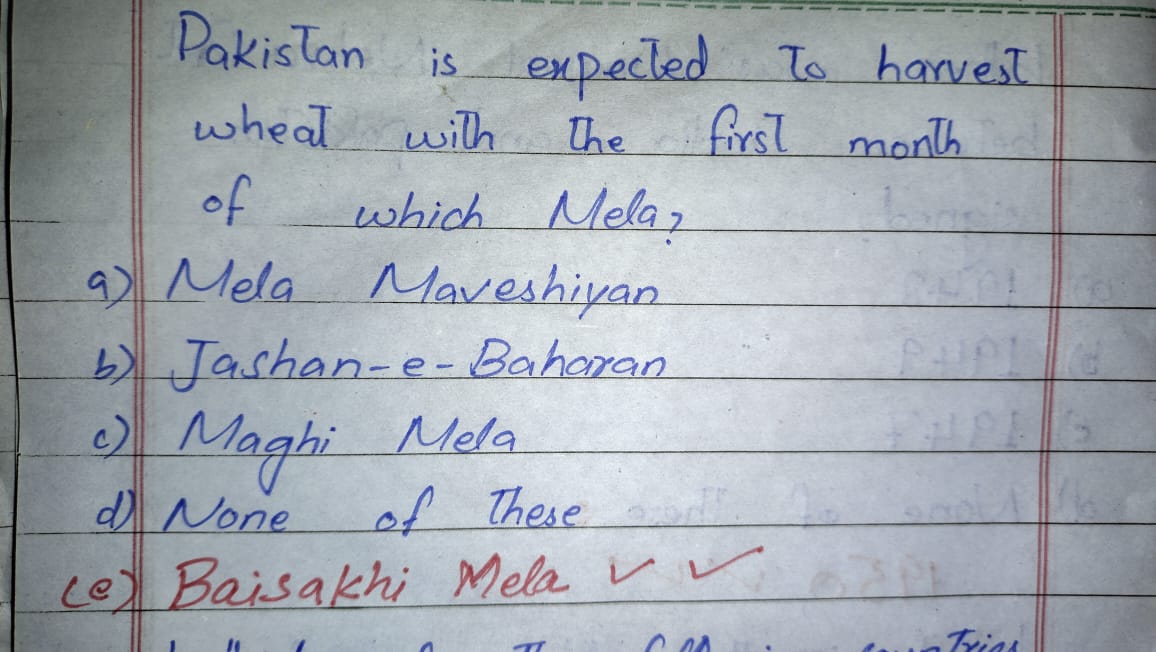 Pakistan is expected To harvest
wheat with The first month
of which Mela?
a) Mela Maveshiyan
b) Jashan-e-Baharan
c) Maghi Mela
d) None of These
(e) Baisakhi Mela ✓ ✓